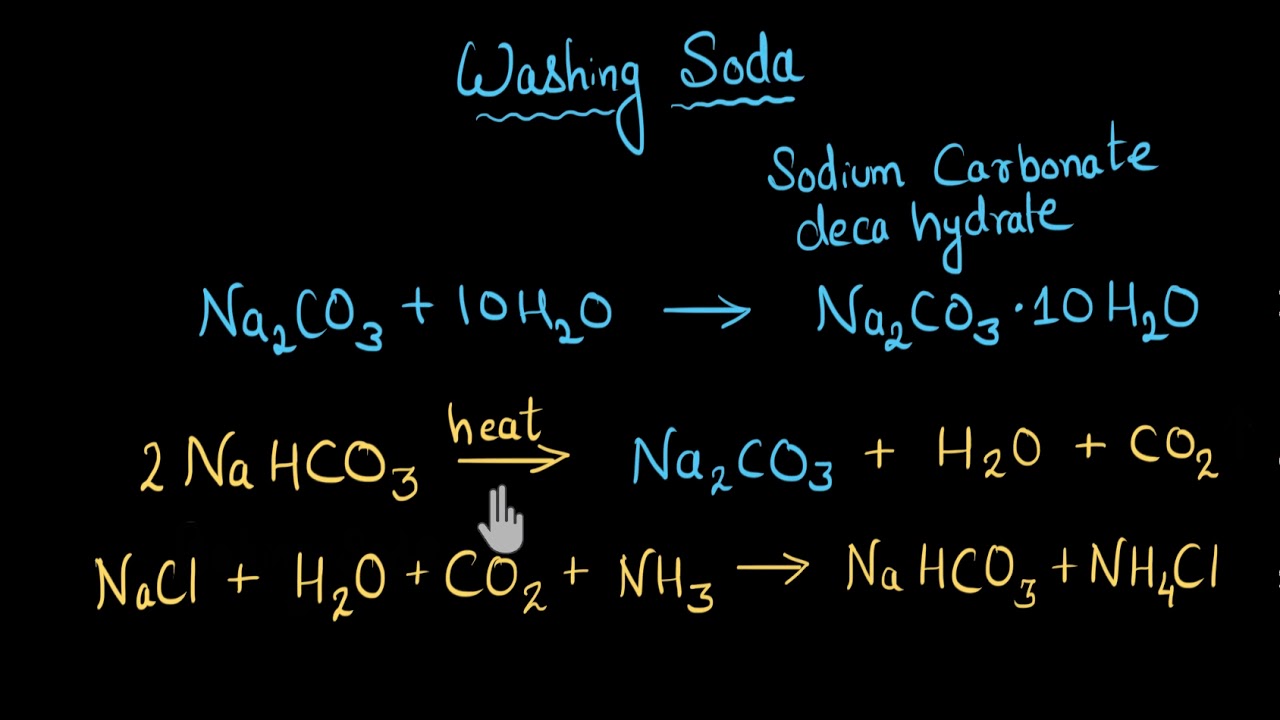 Washing Soda
Sodium Carbonate
deca hydrate
Na₂CO₃ + 10H₂O → Na₂CO₃·10H₂O
heat
2 NaHCO₃ → Na₂CO₃ + H₂O + CO₂
NaCl + H₂O + CO₂ + NH₃ → NaHCO₃ + NH₄Cl